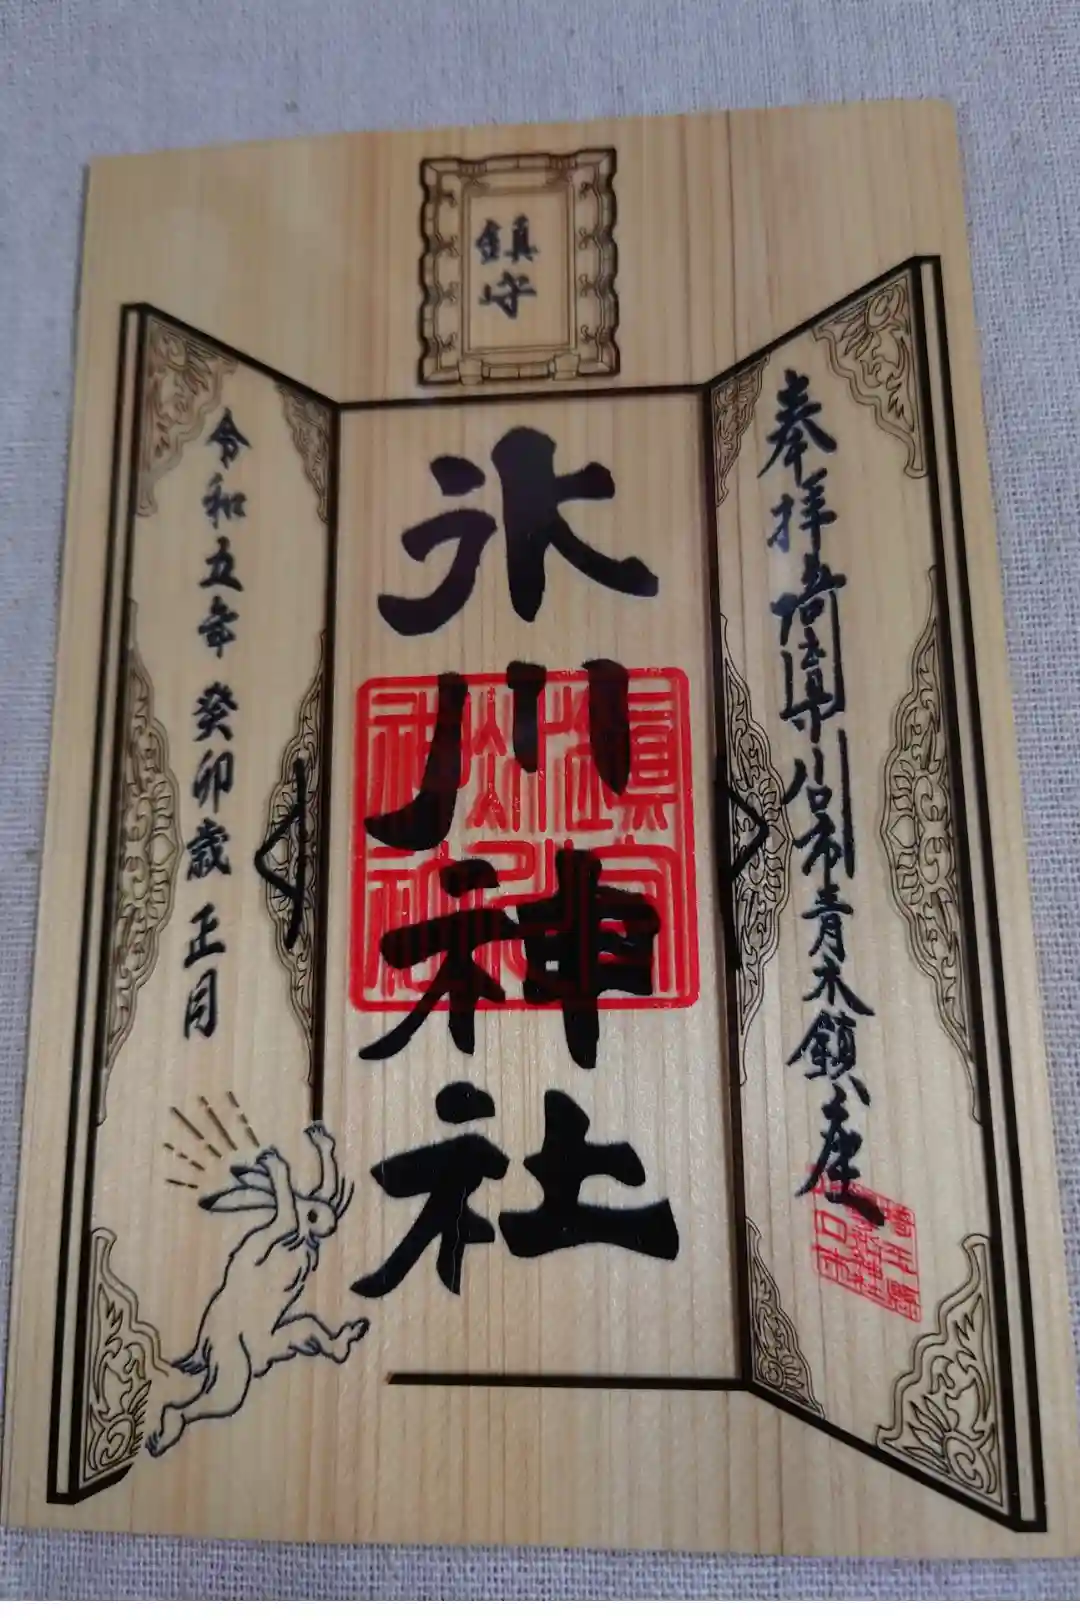 鎮守
奉拝 埼玉県川口市青木鎮座
氷川神社
鎮守氷川神社
令和五年 癸卯歳 正月